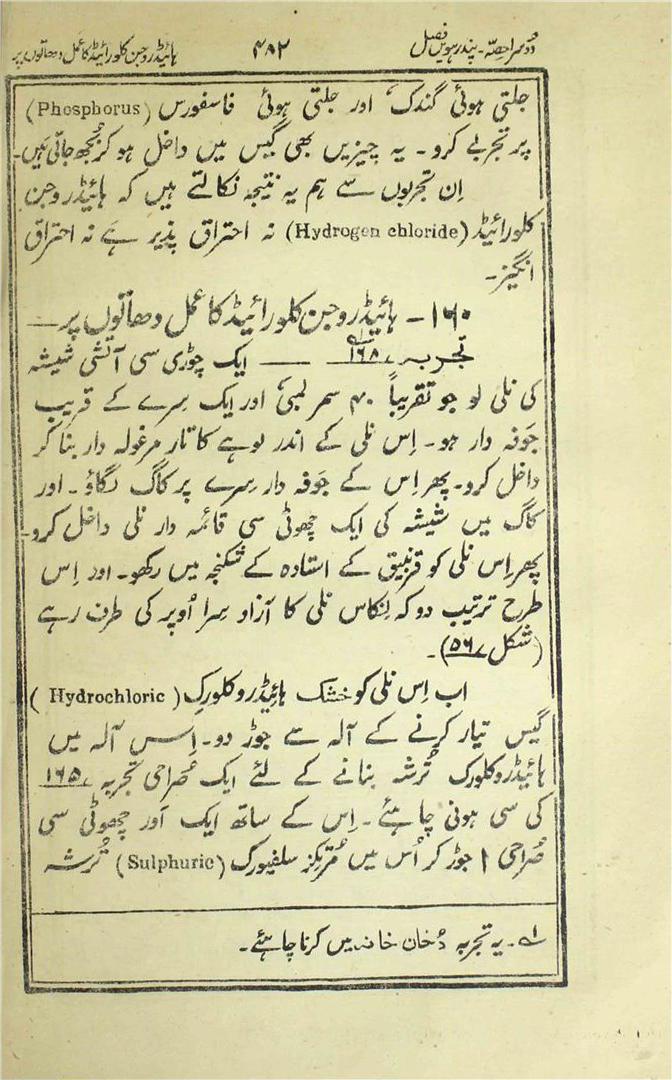 دوسرا حصہ۔ پندرہویں فصل
۴۸۲
ہائیڈروجن کلورائیڈ کا عمل دھاتوں پر
جلتی ہوئی گندک، اور جلتی ہوئی فاسفورس (Phosphorus)
پر تجربے کرو۔ یہ چیزیں بھی گیس میں داخل ہو کر بُجھ جاتی ہیں۔
اِن تجربوں سے ہم یہ نتیجہ نکالتے ہیں کہ ہائیڈروجن
کلورائیڈ (Hydrogen chloride) نہ احتراق پذیر ہے نہ احتراق
انگیز۔
۱۶۰۔ ہائیڈروجن کلورائیڈ کا عمل دھاتوں پر—
تجربہ ۱۶۸؎ — ایک چوڑی سی آتشی شیشہ
کی نلی لو جو تقریباً ۴۰ سمر لمبی اور ایک سِرے کے قریب
جَوفہ دار ہو۔ اِس نلی کے اندر لوہے کا تار مرغولہ دار بنا کر
داخل کرو۔ پھر اِس کے جَوفہ دار سِرے پر کاگ لگاؤ۔ اور
کاگ میں شیشہ کی ایک چھوٹی سی قائمہ دار نلی داخل کرو۔
پھر اِس نلی کو قرنبیق کے استادہ کے شکنجہ میں رکھو۔ اور اِس
طرح ترتیب دو کہ نِکاس نلی کا آزاد سِرا اُوپر کی طرف رہے
(شکل ۵۶)۔
اب اِس نلی کو خشک ہائیڈروکلورِک (Hydrochloric)
گیس تیار کرنے کے آلہ سے جوڑ دو۔ اِس آلہ میں
ہائیڈروکلورک تُرشہ بنانے کے لئے ایک صُراحی تجربہ ۱۶۵
کی سی ہونی چاہئے۔ اِس کے ساتھ ایک اَور چھوٹی سی
صُراحی ا جوڑ کر اُس میں مُرتکز سلفیورک (Sulphuric) تُرشہ
۱؎۔ یہ تجربہ دُخان خانہ میں کرنا چاہئے۔